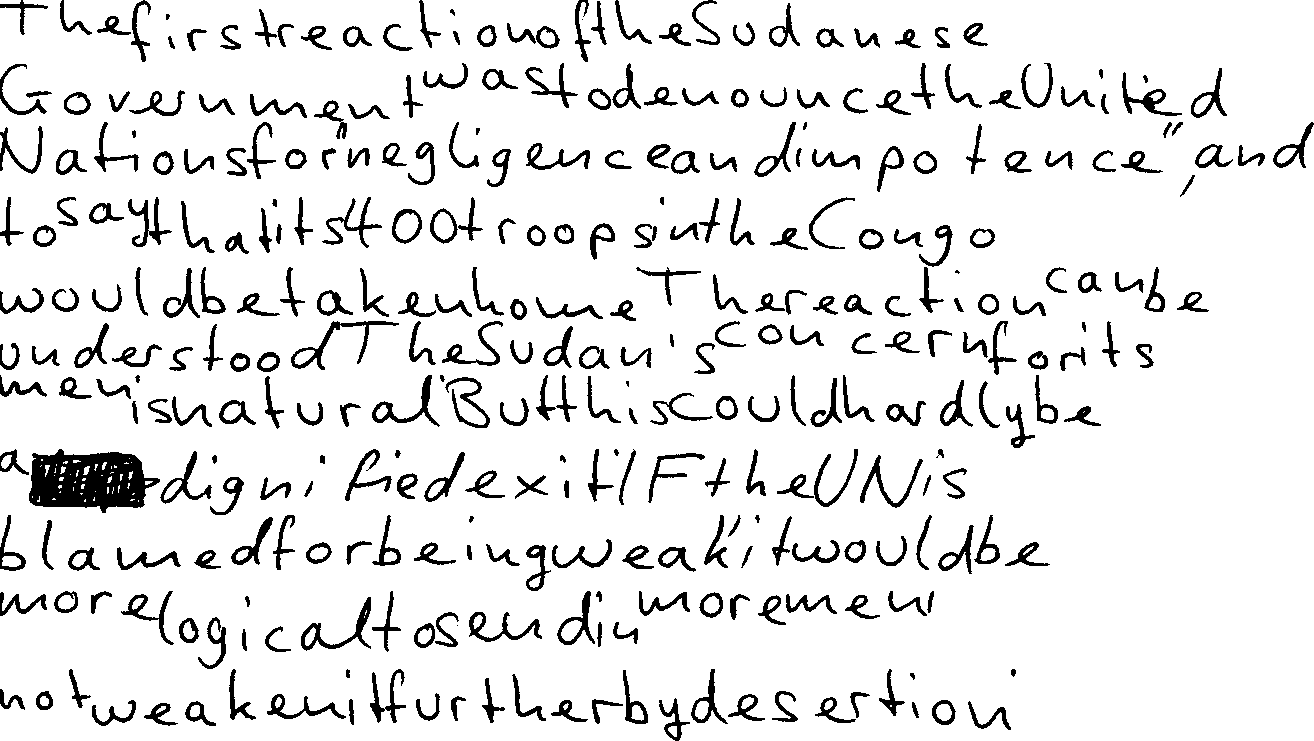 The first reaction of the Sudanese
Government was to denounce the United
Nations for "negligence and impotence", and
to say that its 400 troops in the Congo
would be taken home The reaction can be
understood The Sudan's concern for its
men is natural But this could hardly be
a dignified exit IF the UN is
blamed for being weak it would be
more logical to send in more men
not weaken it further by desertion